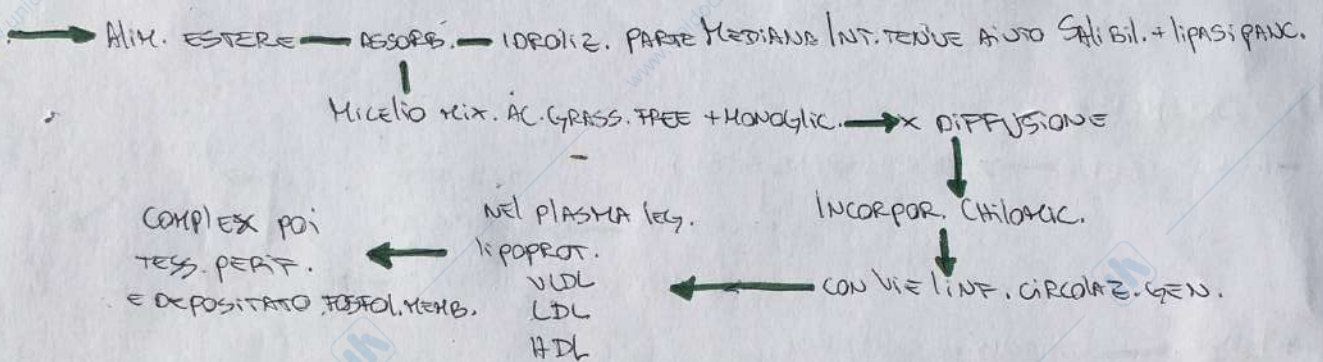 ALIM. ESTERE ASSORB. IDROLIZ. PARTE MEDIANA INT. TENUE AIUTO SALI BIL. + LIPASI PANC.
MICELIO MIX. AC. GRASS. FREE + MONOGLIC. X DIFFUSIONE
INCORPOR. CHILOMIC.
CON VIE LINF. CIRCOLAZ. GEN.
NEL PLASMA LEG.
LIPOPROT.
VLDL
LDL
HDL
COMPLEX POI
TESS. PERIF.
E DEPOSITATO FOSFOL. MEMB.